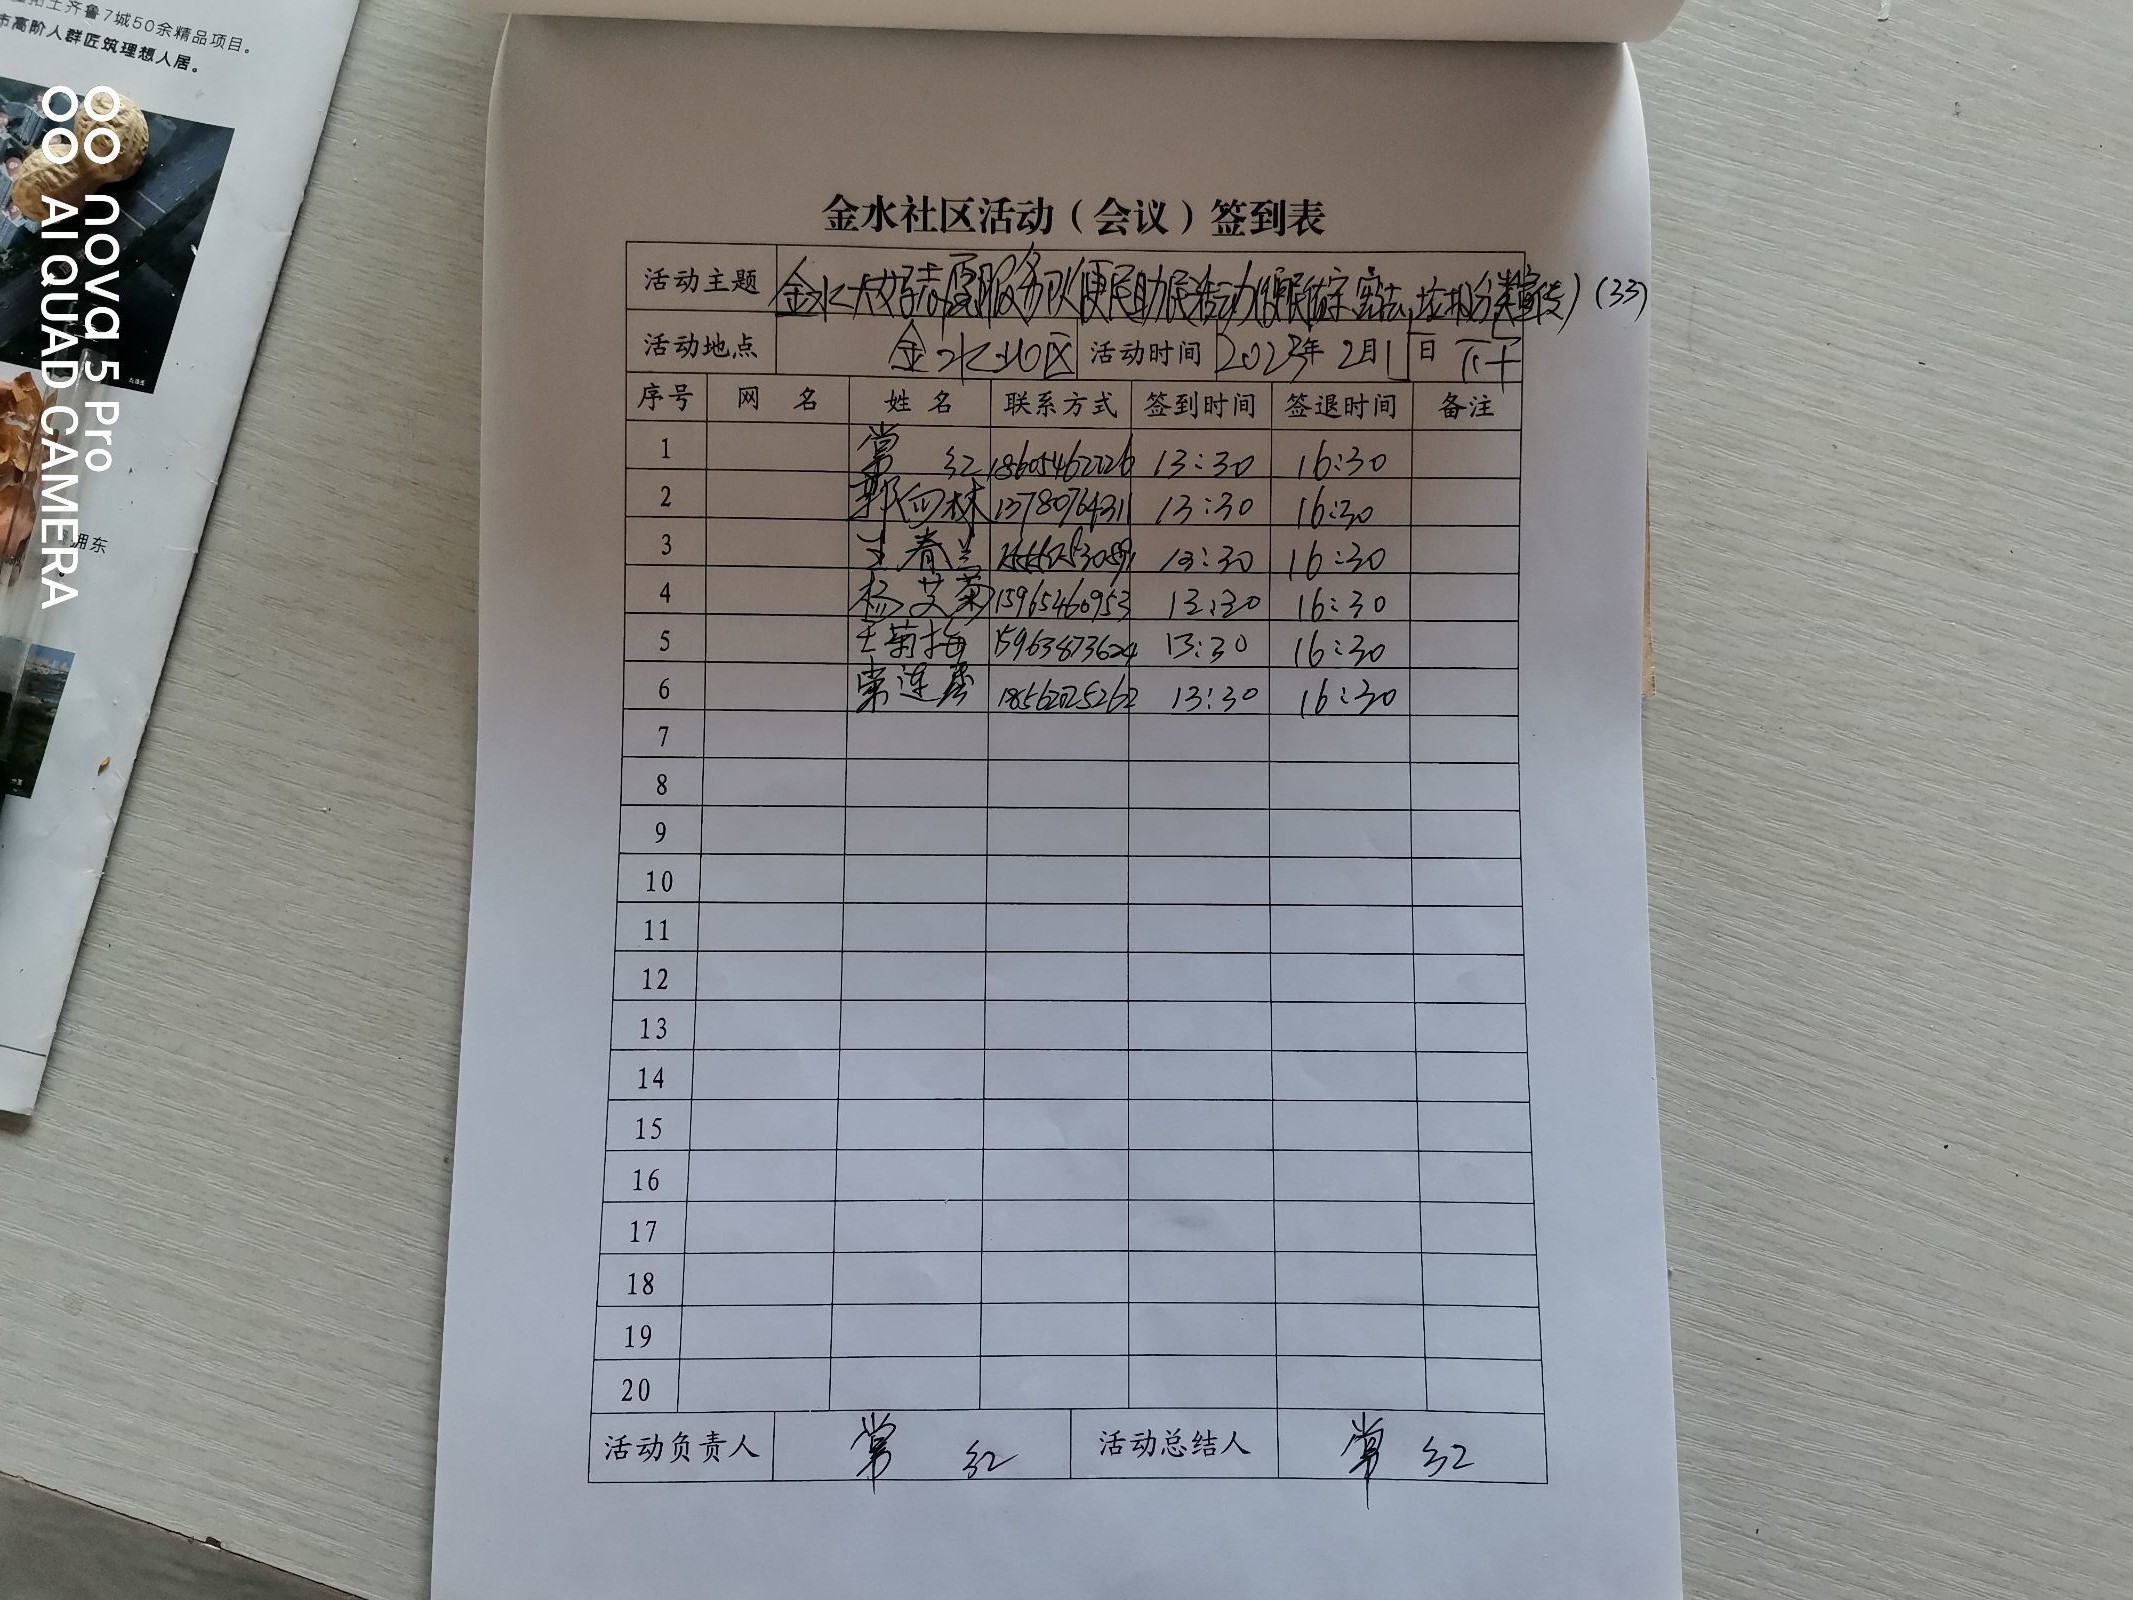 齐鲁7城50余精品项目。
市高阶人群匠筑理想人居。
nova 5 Pro
AI QUAD CAMERA
拥东
金水社区活动（会议）签到表
活动主题 金水大嫂志愿服务队便民助民活动(便民 宪法,垃圾分类宣传) (33)
活动地点 金水北区 活动时间 2023年 2月 日 下午
序号 网 名 姓 名 联系方式 签到时间 签退时间 备注
1 常 红 13:30 16:30
2 郭 林 13780764311 13:30 16:30
3 王春兰 13:30 16:30
4 杨艾菊 15965460953 13:30 16:30
5 王菊梅 15963873624 13:30 16:30
6 连 18562025262 13:30 16:30
7
8
9
10
11
12
13
14
15
16
17
18
19
20
活动负责人 常 红 活动总结人 常 红